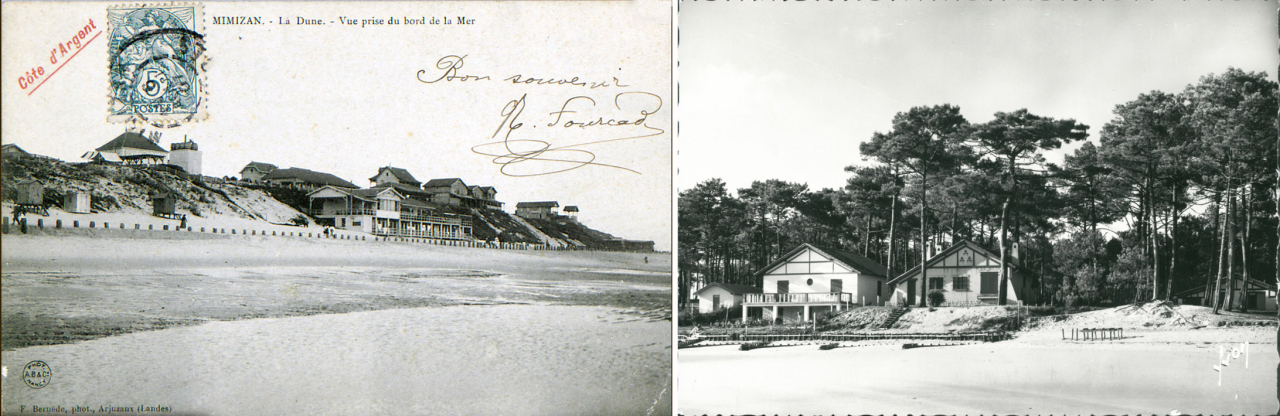 MIMIZAN. - La Dune. - Vue prise du bord de la Mer
Côte d'Argent
5c
POSTES
Bon souvenir
N. Fourcad
PHOT
A.B & Cie
NANCY
F. Bernède, phot., Arjuzanx (Landes)
Yvon